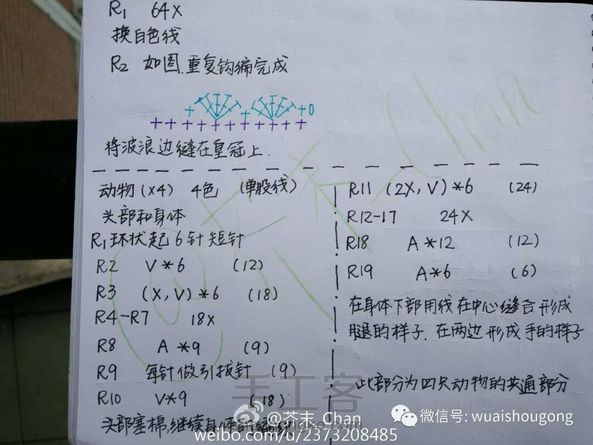 R1 64X
换白色线
R2 如图.重复钩编完成
将波浪边缝在皇冠上.
动物(x4) 4色 (单股线)
头部和身体
R1 环状起6针短针
R2 V*6 (12)
R3 (X,V)*6 (18)
R4-R7 18X
R8 A*9 (9)
R9 每针做引拔针 (9)
R10 V*9 (18)
头部塞棉,继续身体
R11 (2X,V)*6 (24)
R12-17 24X
R18 A*12 (12)
R19 A*6 (6)
在身体下部用线在中心缝合形成
腿的样子.在两边形成手的样子
此部分为四只动物的共通部分
手工客
@芥末_Chan
weibo.com/u/2373208485
微信号: wuaishougong